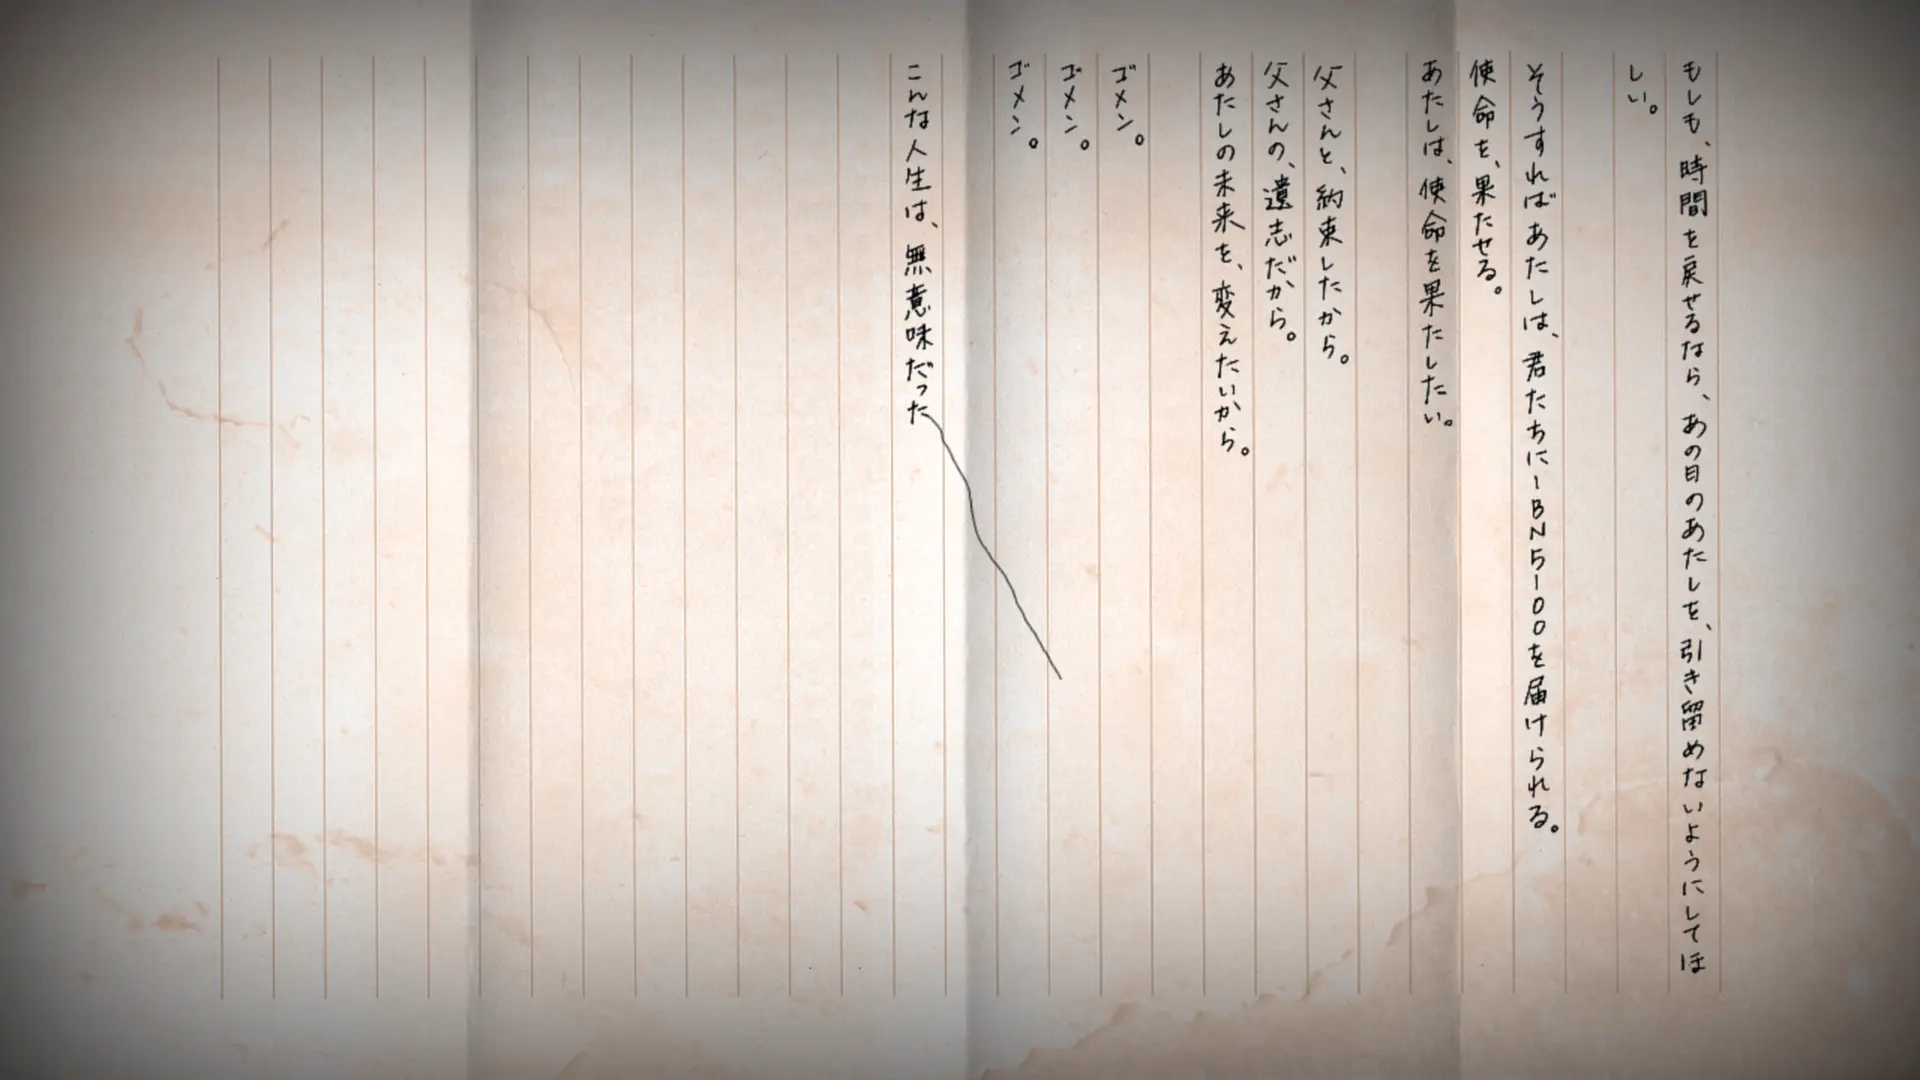 もしも、時間を戻せるなら、あの日のあたしを、引き留めないようにしてほ
しい。
そうすればあたしは、君たちにIBN5100を届けられる。
使命を、果たせる。
あたしは、使命を果たしたい。
父さんと、約束したから。
父さんの、遺志だから。
あたしの未来を、変えたいから。
ゴメン。
ゴメン。
ゴメン。
こんな人生は、無意味だった